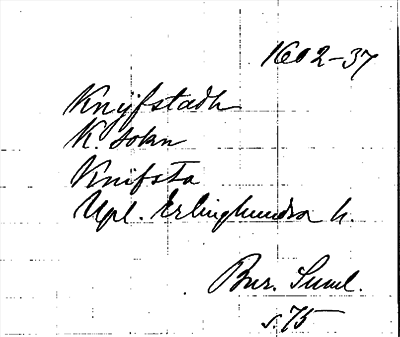 1602-37
Knijfstadh
K. sokn
Knifsta
Upl. Erlinghundra h.
Bur. Suml.
s. 75